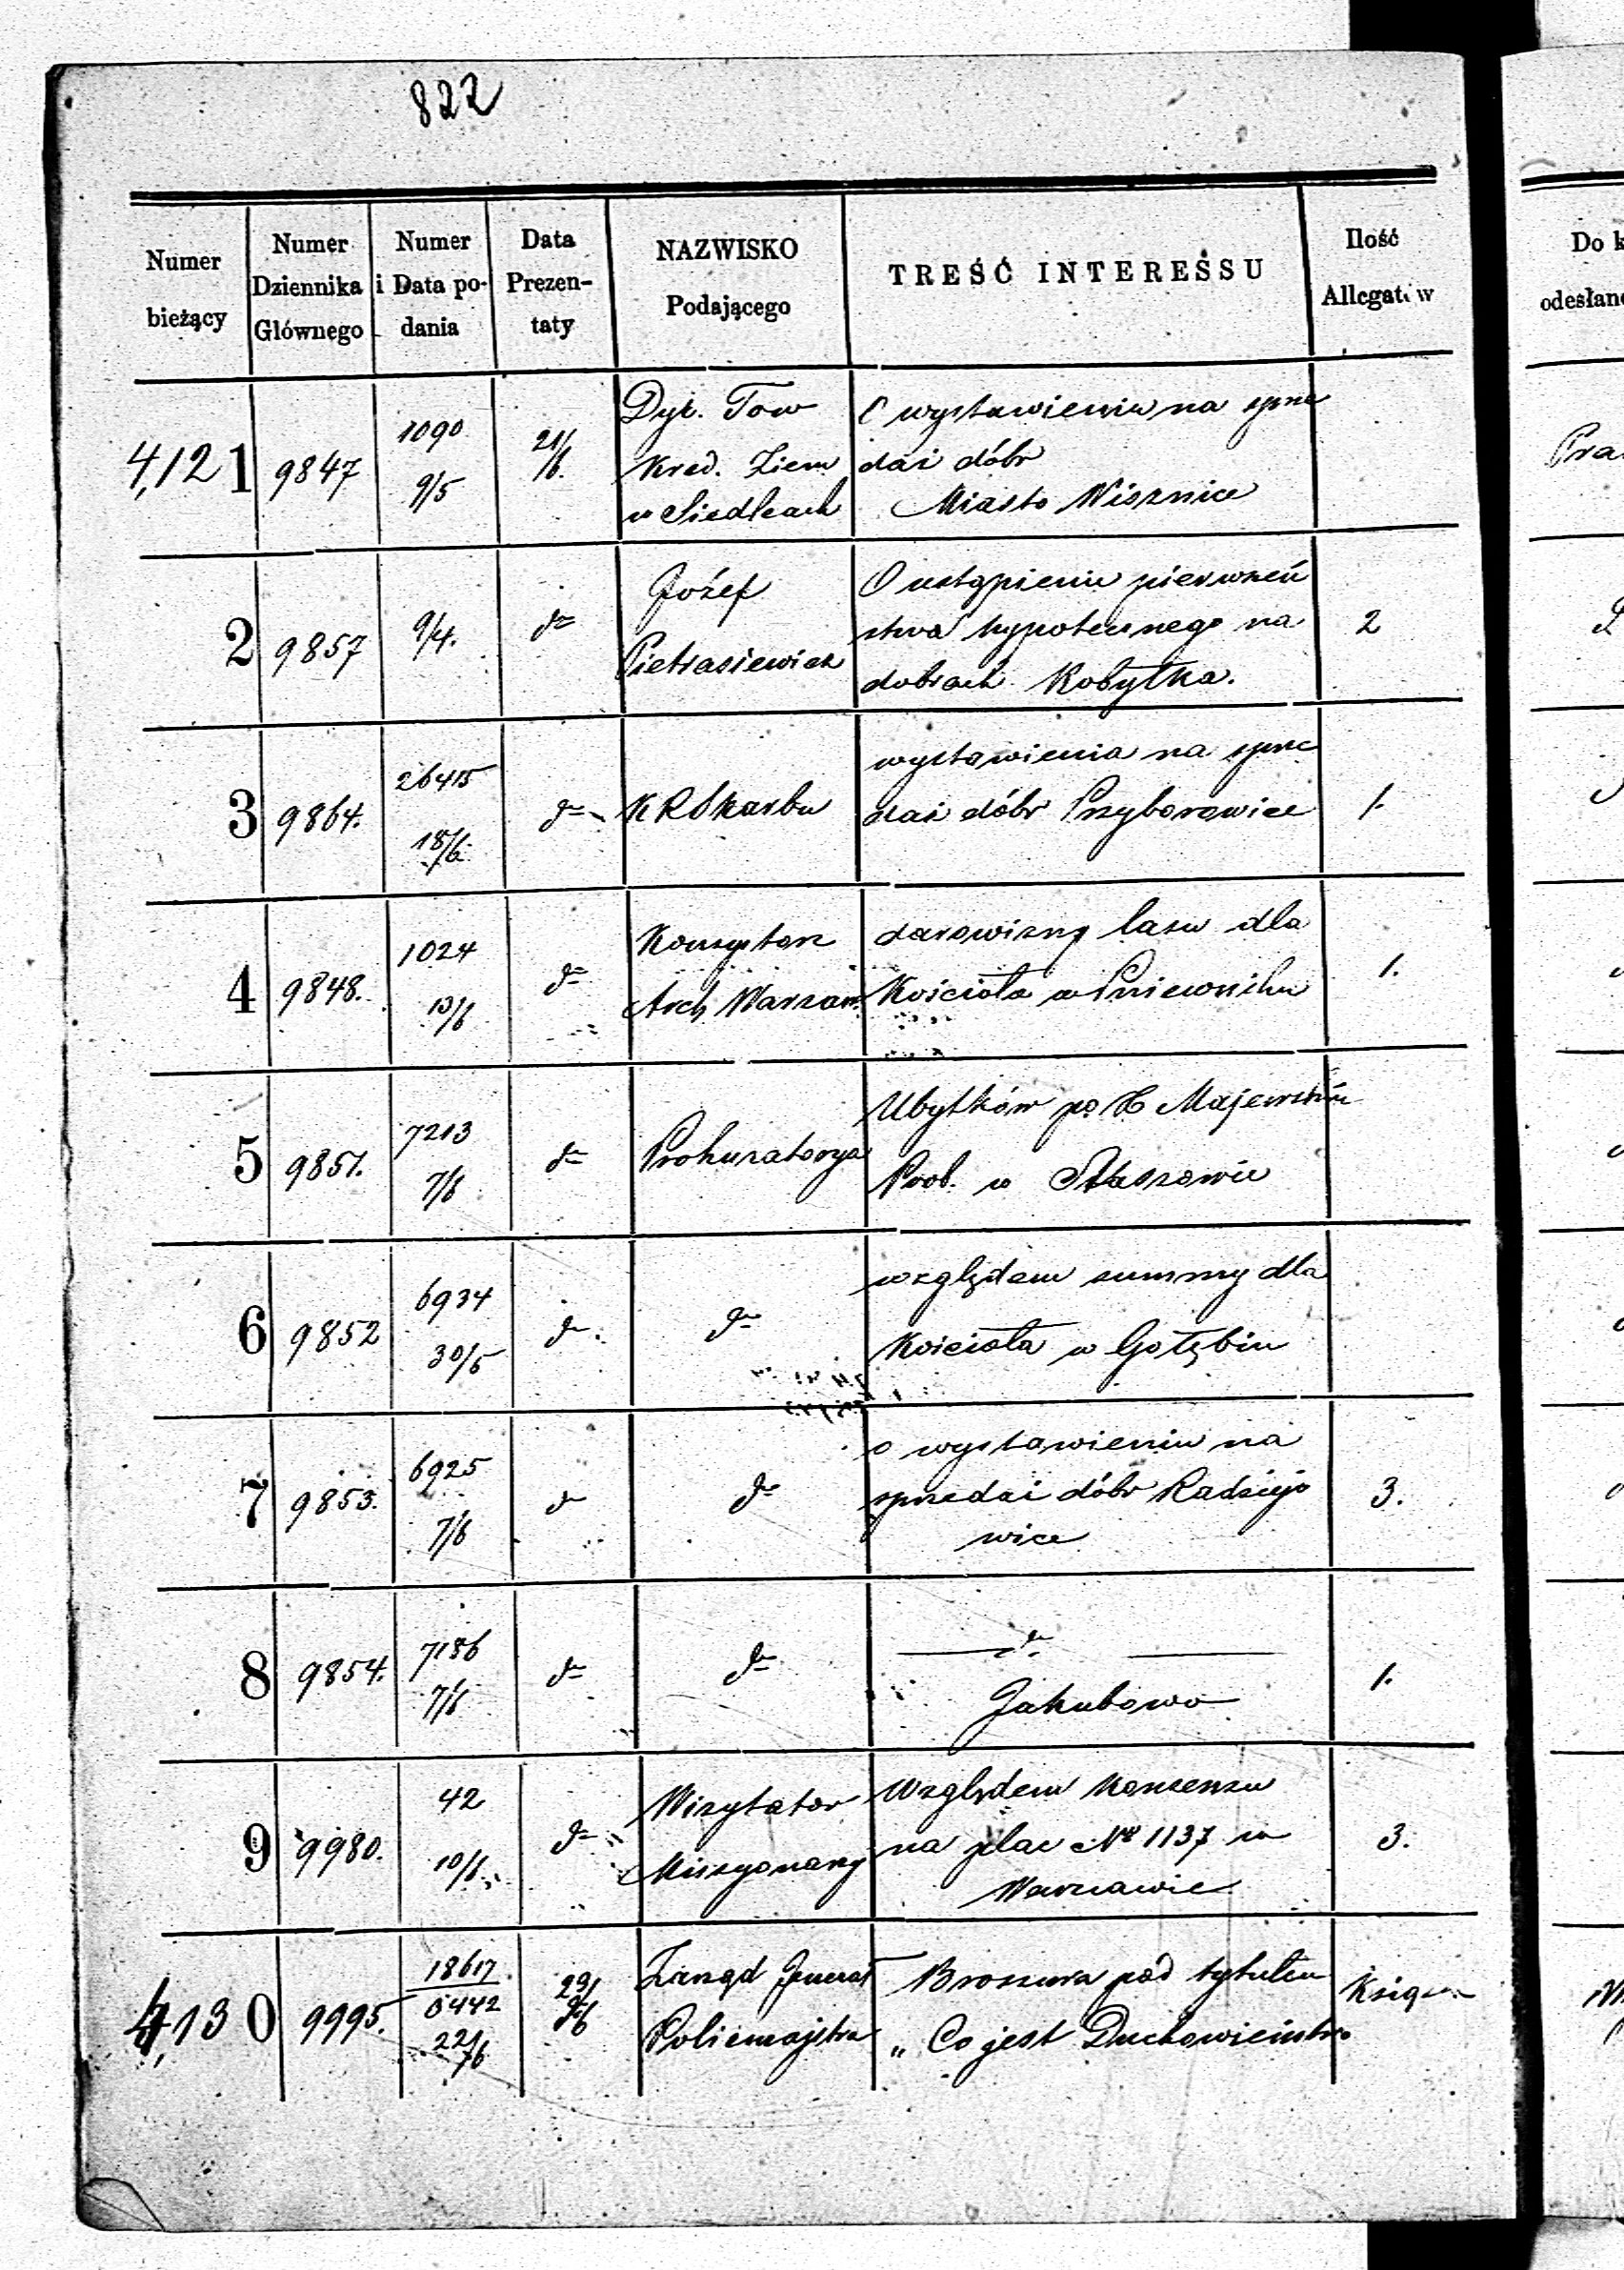 822
Numer bieżący | Numer Dziennika Głównego | Numer i Data podania | Data Prezentaty | NAZWISKO Podającego | TREŚĆ INTERESSU | Ilość Allegatów
4,121 | 9847 | 1090 9/5 | 21/6. | Dyr. Tow
Kred. Ziem
w Siedlcach | O wystawieniu na sprze
daż dóbr
Miasto Wisznice
2 | 9857 | 9/4. | do | Józef
Pietrasiewicz | O ustąpieniu pierwszeń
stwa hypotecznego na
dobrach Kobyłka. | 2
3 | 9864. | 26415 18/6 | do | K R Skarbu | wystawienia na sprze
daż dóbr Przyborowice | 1.
4 | 9848. | 1024 13/6 | do | Konsystorz
Arch Warszaw. | darowizny lasu dla
Kościoła w Pniewniku | 1.
5 | 9851. | 7213 7/6 | do | Prokuratorya | Ubytków po X Majewskim
Prob. w Staszowie
6 | 9852 | 6934 30/5 | do | do | względem summy dla
Kościoła w Gołębiu
7 | 9853. | 6925 7/6 | do | do | o wystawieniu na
sprzedaż dóbr Radziejo
wice | 3.
8 | 9854. | 7186 7/6 | do | do | do
Jakubowo | 1.
9 | 9980. | 42 10/6 | do | Wizytator
Missyonarzy | Względem Konsensu
na plac No 1137 w
Warszawie | 3.
4,130 | 9995. | 18617 0442 22/6 | Zarząd Jenerał
Policmajstra | Broszura pod tytułem
„ Co jest Duchowieństwo
Do k
odesłano